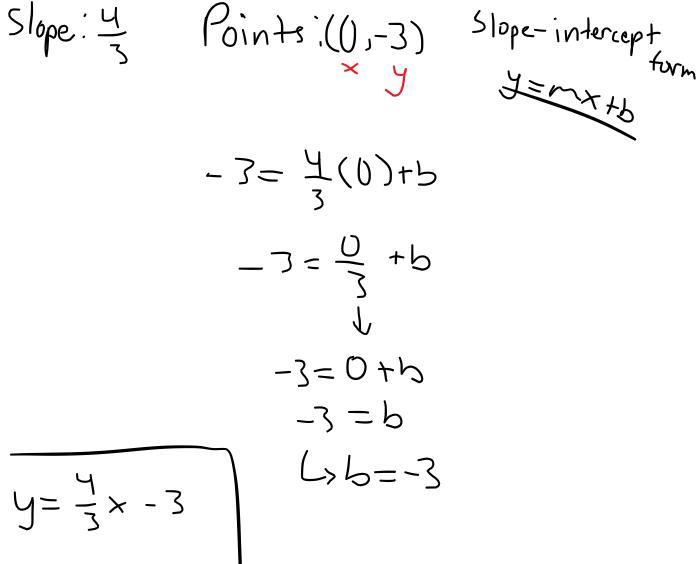 Slope: 4/3
Points: (0, -3)
x y
Slope-intercept
form
y = mx + b
-3 = 4/3 (0) + b
-3 = 0/3 + b
↓
-3 = 0 + b
-3 = b
↳ b = -3
y = 4/3 x - 3